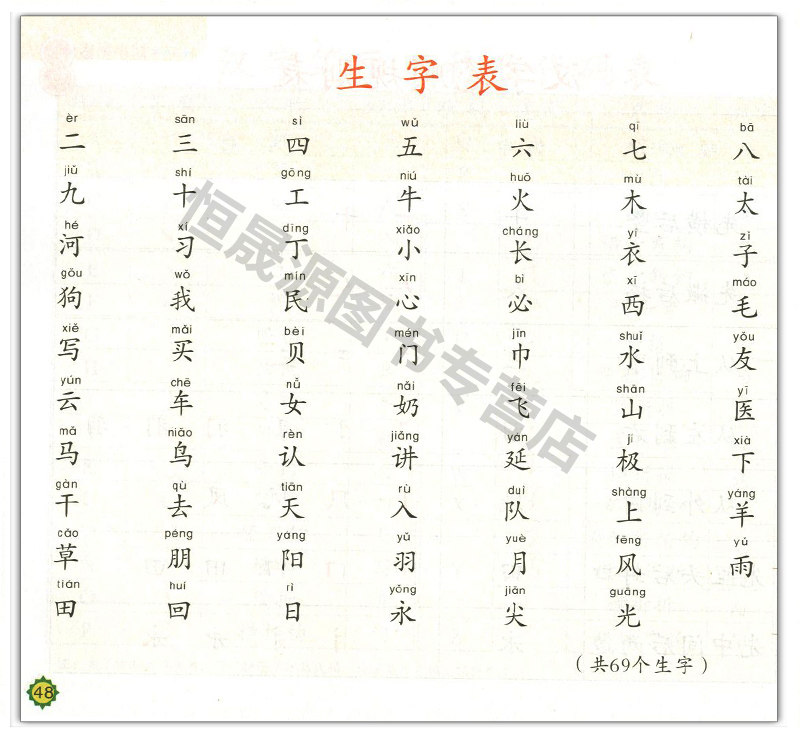 生字表
èr sān sì wǔ liù qī bā
二 三 四 五 六 七 八
jiǔ shí gōng niú huǒ mù tài
九 十 工 牛 火 木 太
hé xí dīng xiǎo cháng yī zǐ
河 习 丁 小 长 衣 子
gǒu wǒ mín xīn bì xī máo
狗 我 民 心 必 西 毛
xiě mǎi bèi mén jīn shuǐ yǒu
写 买 贝 门 巾 水 友
yún chē nǚ nǎi fēi shān yī
云 车 女 奶 飞 山 医
mǎ niǎo rèn jiǎng yán jí xià
马 鸟 认 讲 延 极 下
gàn qù tiān rù duì shàng yáng
干 去 天 入 队 上 羊
cǎo péng yáng yǔ yuè fēng yǔ
草 朋 阳 羽 月 风 雨
tián huí rì yǒng jiān guāng
田 回 日 永 尖 光
(共69个生字)
48
恒晟源图书专营店